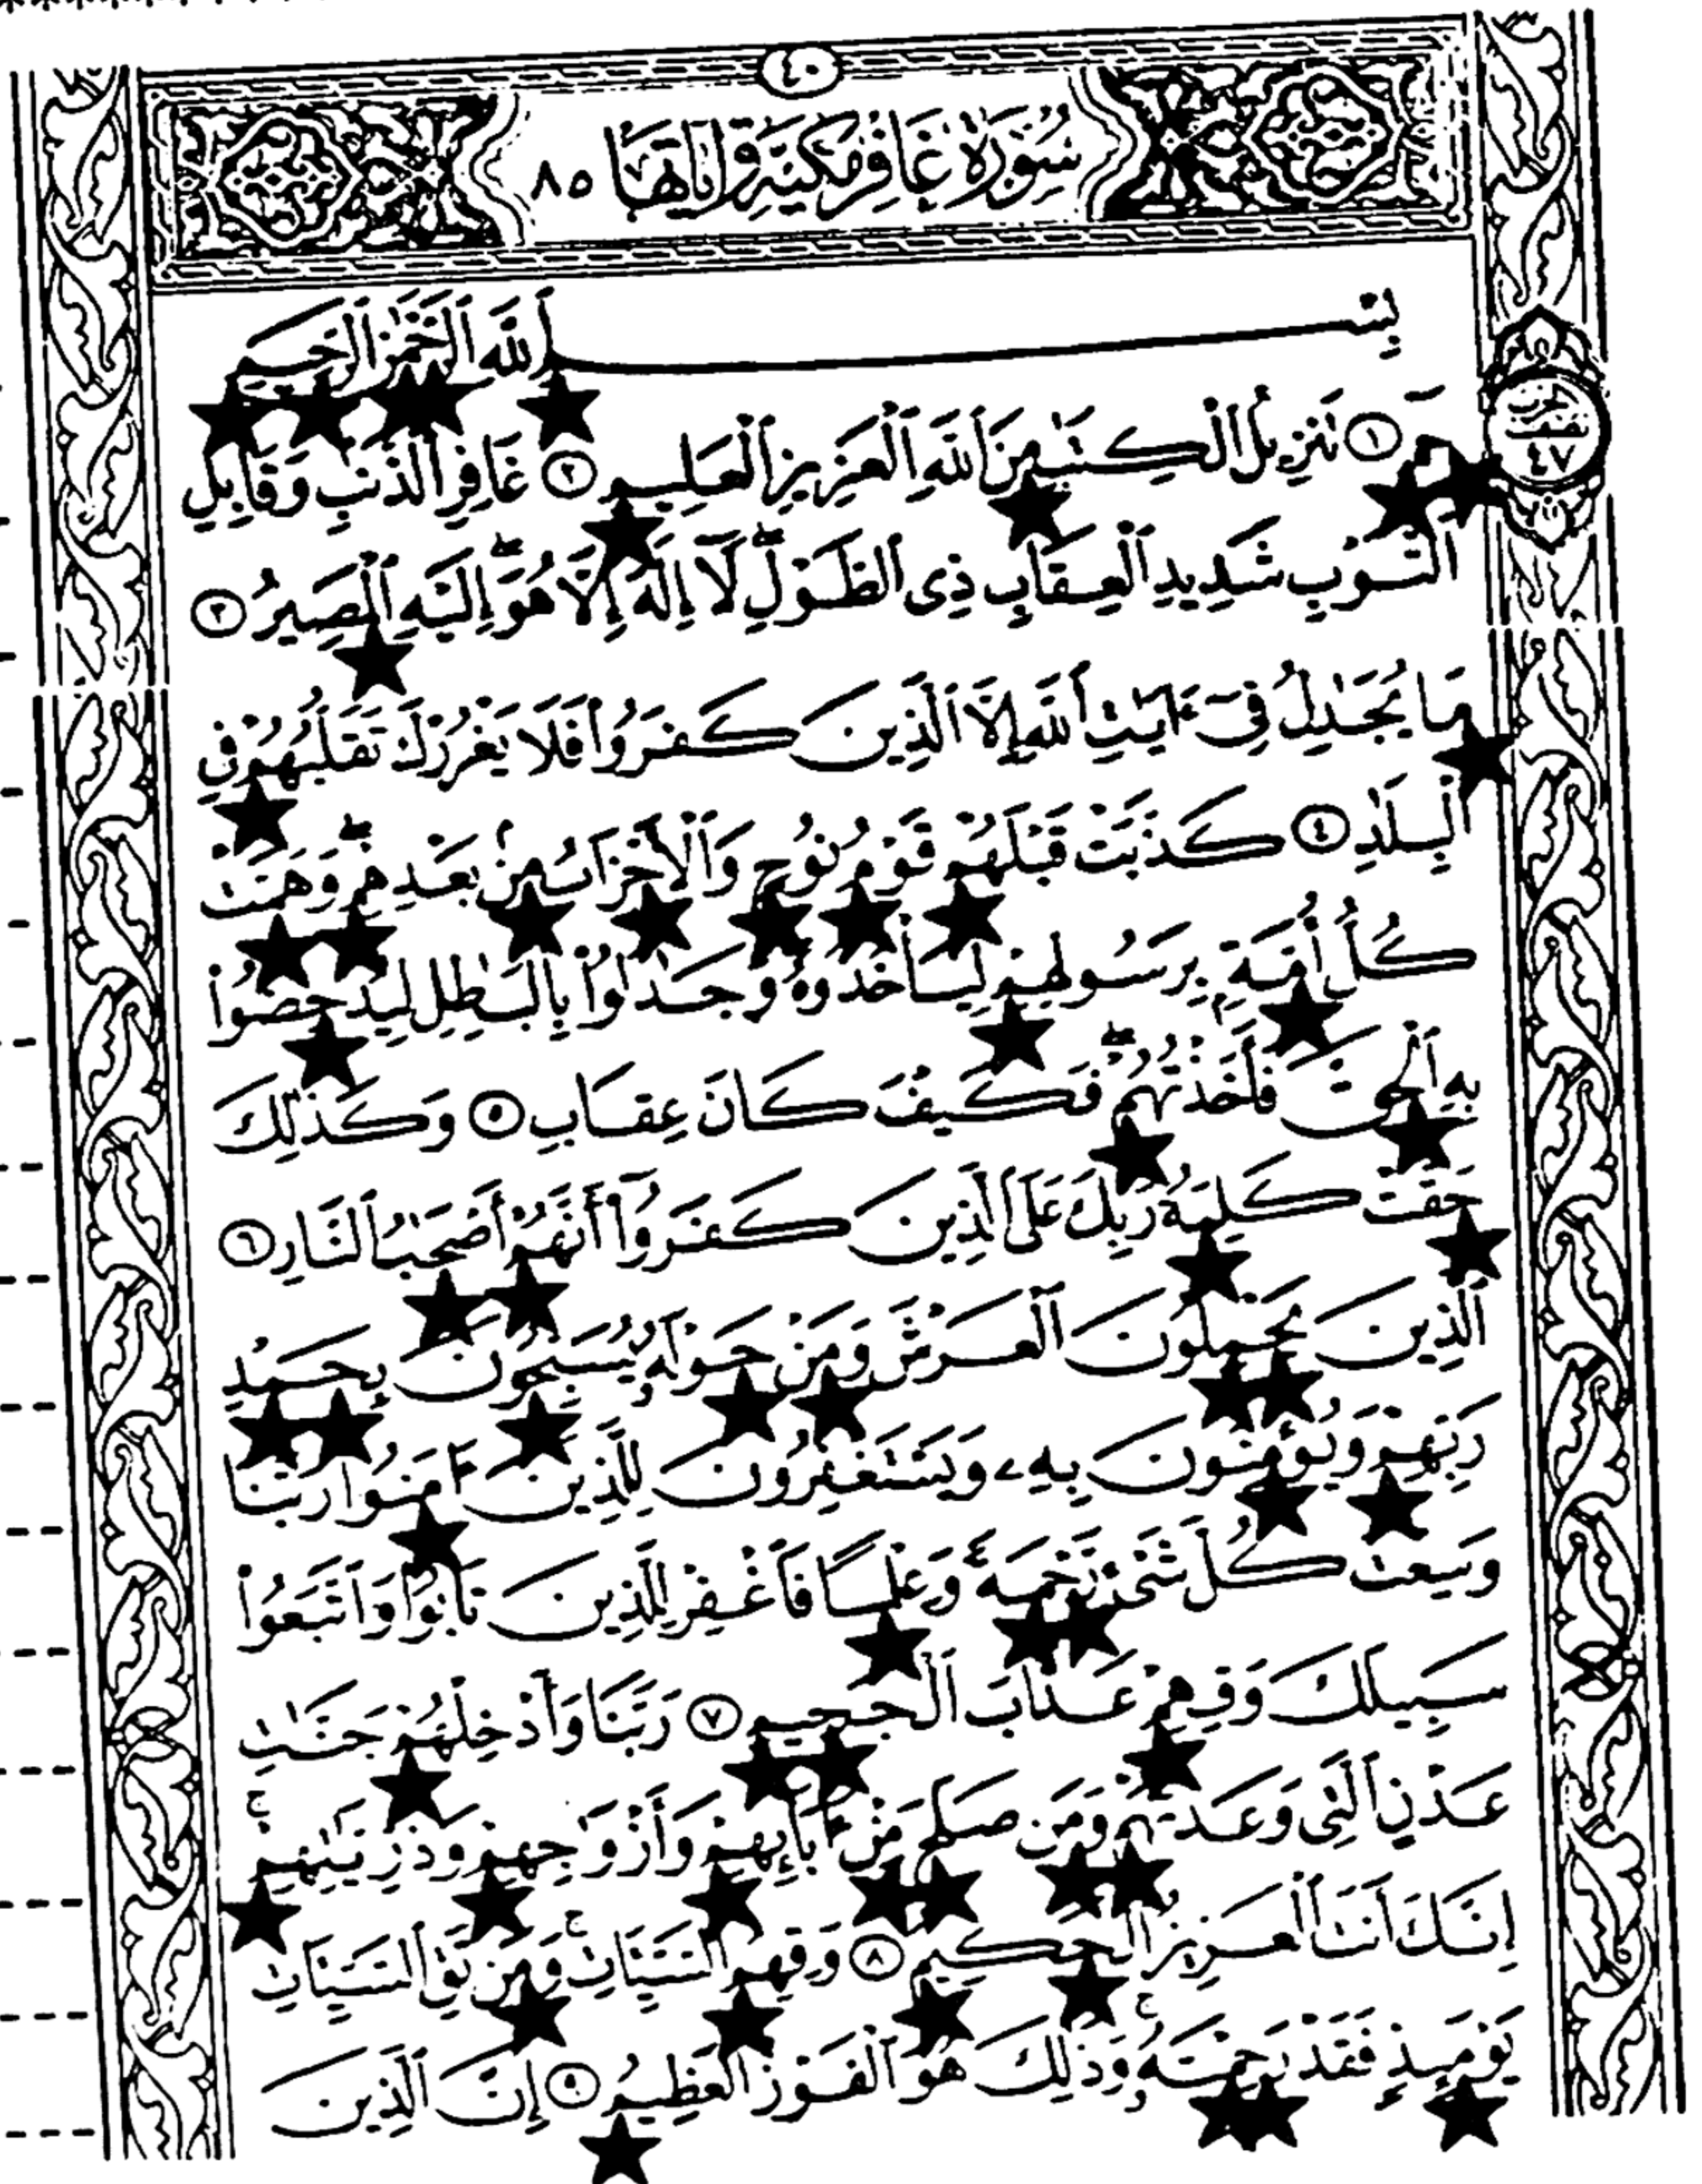 ٤٠
سُورَةُ غَافِرٍ مَكِّيَّةٌ وَآيَاتُهَا ٨٥
بِسْمِ ٱللَّهِ ٱلرَّحْمَٰنِ ٱلرَّحِيمِ
حمٓ ١ تَنزِيلُ ٱلْكِتَٰبِ مِنَ ٱللَّهِ ٱلْعَزِيزِ ٱلْعَلِيمِ ٢ غَافِرِ ٱلذَّنۢبِ وَقَابِلِ
٤٧
ٱلتَّوْبِ شَدِيدِ ٱلْعِقَابِ ذِى ٱلطَّوْلِ ۖ لَآ إِلَٰهَ إِلَّا هُوَ ۖ إِلَيْهِ ٱلْمَصِيرُ ٣
مَا يُجَٰدِلُ فِىٓ ءَايَٰتِ ٱللَّهِ إِلَّا ٱلَّذِينَ كَفَرُوا۟ فَلَا يَغْرُرْكَ تَقَلُّبُهُمْ فِى
ٱلْبِلَٰدِ ٤ كَذَّبَتْ قَبْلَهُمْ قَوْمُ نُوحٍ وَٱلْأَحْزَابُ مِنۢ بَعْدِهِمْ ۖ وَهَمَّتْ
كُلُّ أُمَّةٍۭ بِرَسُولِهِمْ لِيَأْخُذُوهُ ۖ وَجَٰدَلُوا۟ بِٱلْبَٰطِلِ لِيُدْحِضُوا۟
بِهِ ٱلْحَقَّ فَأَخَذْتُهُمْ ۖ فَكَيْفَ كَانَ عِقَابِ ٥ وَكَذَٰلِكَ
حَقَّتْ كَلِمَتُ رَبِّكَ عَلَى ٱلَّذِينَ كَفَرُوٓا۟ أَنَّهُمْ أَصْحَٰبُ ٱلنَّارِ ٦
ٱلَّذِينَ يَحْمِلُونَ ٱلْعَرْشَ وَمَنْ حَوْلَهُۥ يُسَبِّحُونَ بِحَمْدِ
رَبِّهِمْ وَيُؤْمِنُونَ بِهِۦ وَيَسْتَغْفِرُونَ لِلَّذِينَ ءَامَنُوا۟ رَبَّنَا
وَسِعْتَ كُلَّ شَىْءٍ رَّحْمَةً وَعِلْمًا فَٱغْفِرْ لِلَّذِينَ تَابُوا۟ وَٱتَّبَعُوا۟
سَبِيلَكَ وَقِهِمْ عَذَابَ ٱلْجَحِيمِ ٧ رَبَّنَا وَأَدْخِلْهُمْ جَنَّٰتِ
عَدْنٍ ٱلَّتِى وَعَدتَّهُمْ وَمَن صَلَحَ مِنْ ءَابَآئِهِمْ وَأَزْوَٰجِهِمْ وَذُرِّيَّٰتِهِمْ ۚ
إِنَّكَ أَنتَ ٱلْعَزِيزُ ٱلْحَكِيمُ ٨ وَقِهِمُ ٱلسَّيِّـَٔاتِ ۚ وَمَن تَقِ ٱلسَّيِّـَٔاتِ
يَوْمَئِذٍ فَقَدْ رَحِمْتَهُۥ ۚ وَذَٰلِكَ هُوَ ٱلْفَوْزُ ٱلْعَظِيمُ ٩ إِنَّ ٱلَّذِينَ